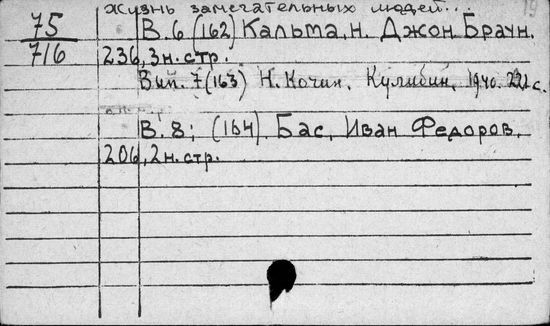 Жизнь замечательных людей...
75
716
В. 6 (162) Кальма, Н. Джон Браун.
236, 3 н. стр.
Вып. 7 (163) Н. Кочин. Кулибин, 1940. 222 с.
В. 8; (164) Бас, Иван Федоров.
206, 2 н. стр.